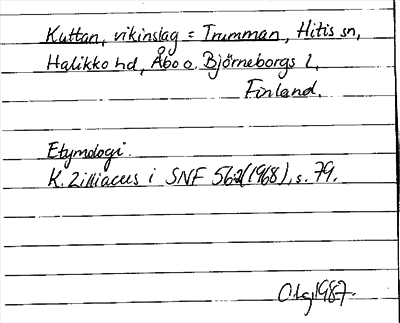 Kuttan, vikinslag = Trumman, Hitis sn,
Halikko hd, Åbo o. Björneborgs l,
Finland.
Etymologi.
K. Zilliacus i SNF 56 (1968), s. 79.
1987.